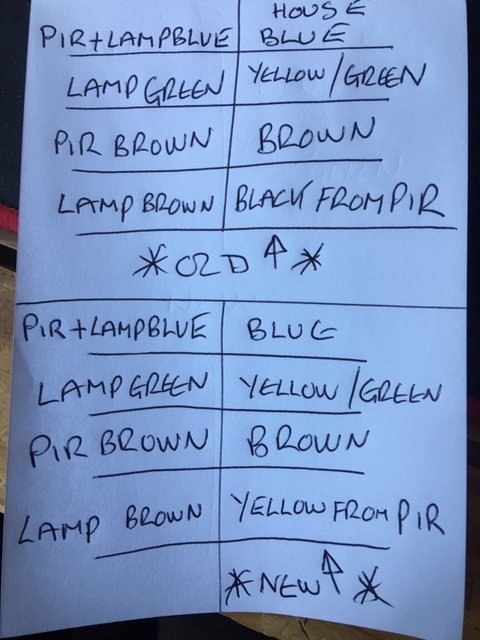 HOUSE
PIR+LAMPBLUE BLUE
LAMP GREEN YELLOW/GREEN
PIR BROWN BROWN
LAMP BROWN BLACK FROM PIR
*OLD↑*
PIR+LAMPBLUE BLUE
LAMP GREEN YELLOW/GREEN
PIR BROWN BROWN
LAMP BROWN YELLOW FROM PIR
*NEW↑*